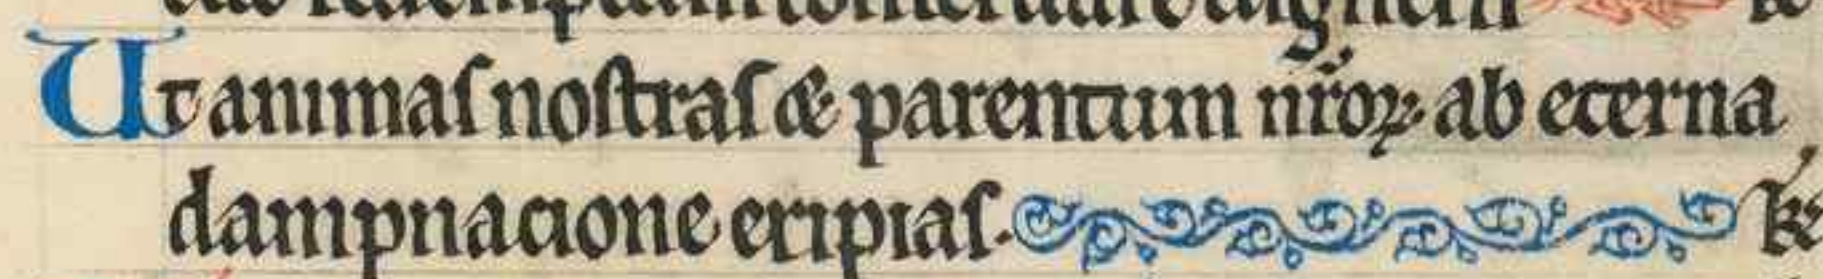 Ut animaſ noſtraſ & parentum nr̄oꝝ ab eterna
dampnacione eripiaſ.